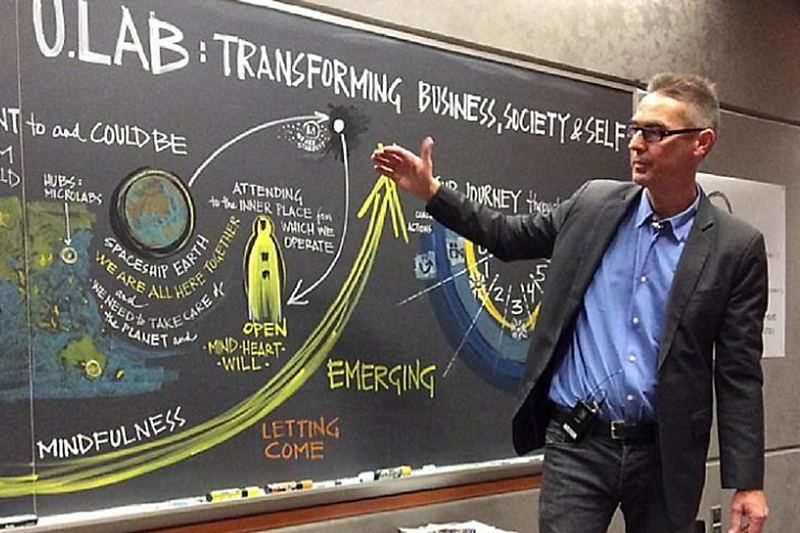 U.LAB: TRANSFORMING BUSINESS, SOCIETY & SELF
to and COULD BE
HUBS:
MICROLABS
SPACESHIP EARTH
WE ARE ALL HERE TOGETHER
and
WE NEED TO TAKE CARE of
the PLANET and
ATTENDING
to the INNER PLACE from
WHICH WE
OPERATE
OPEN
-MIND-HEART-
WILL-
JOURNEY through
ACTIONS
1
2
3
4
5
EMERGING
MINDFULNESS
LETTING
COME